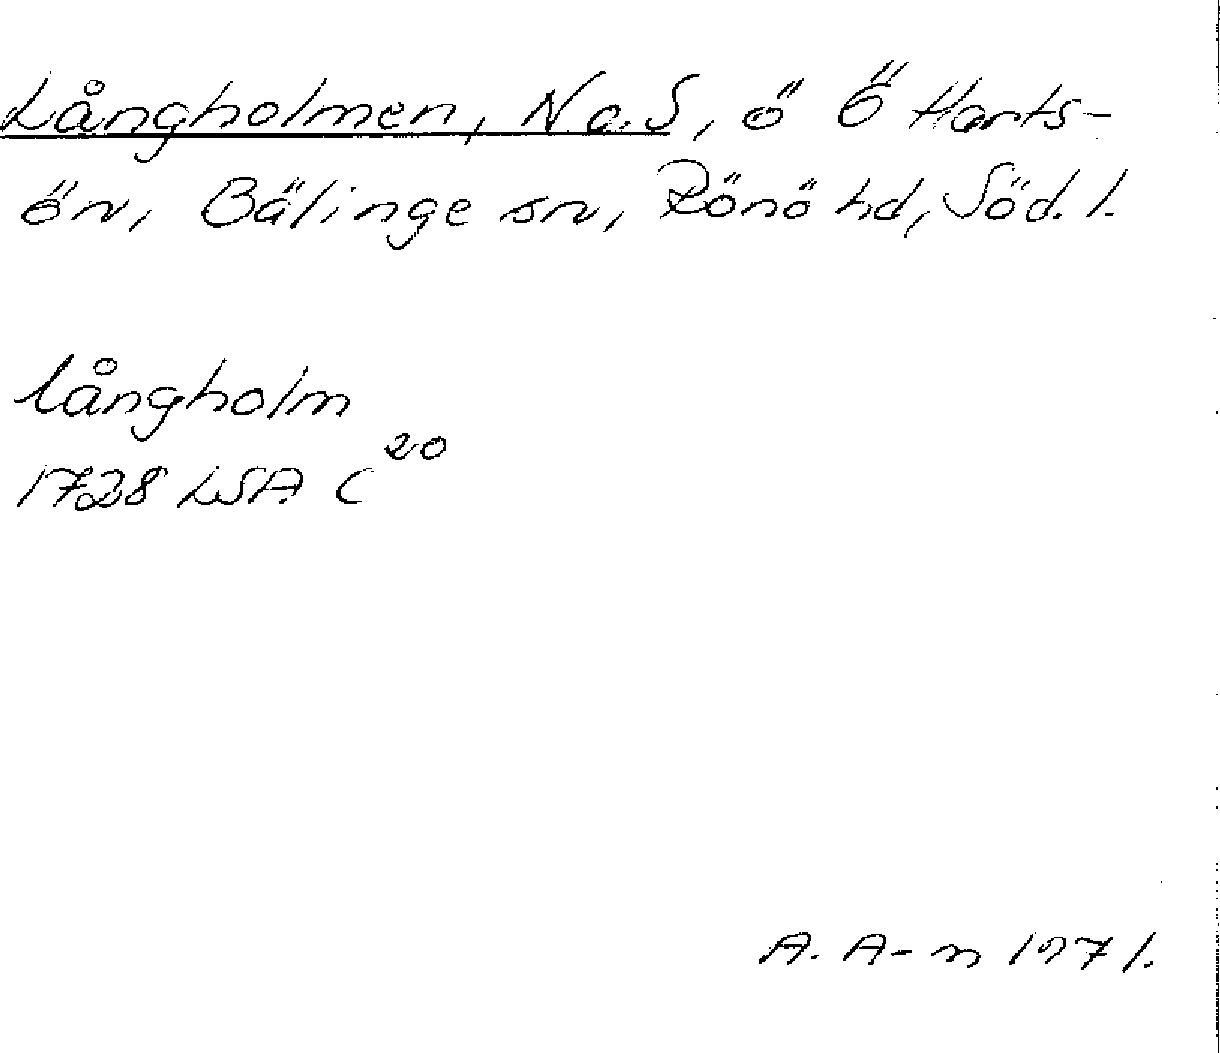 Långholmen, N. o. S, ö Ö Harts-
ön, Bälinge sn, Rönö hd, Söd. l.
långholm
1728 LSA C 20
A. A-m 1971.